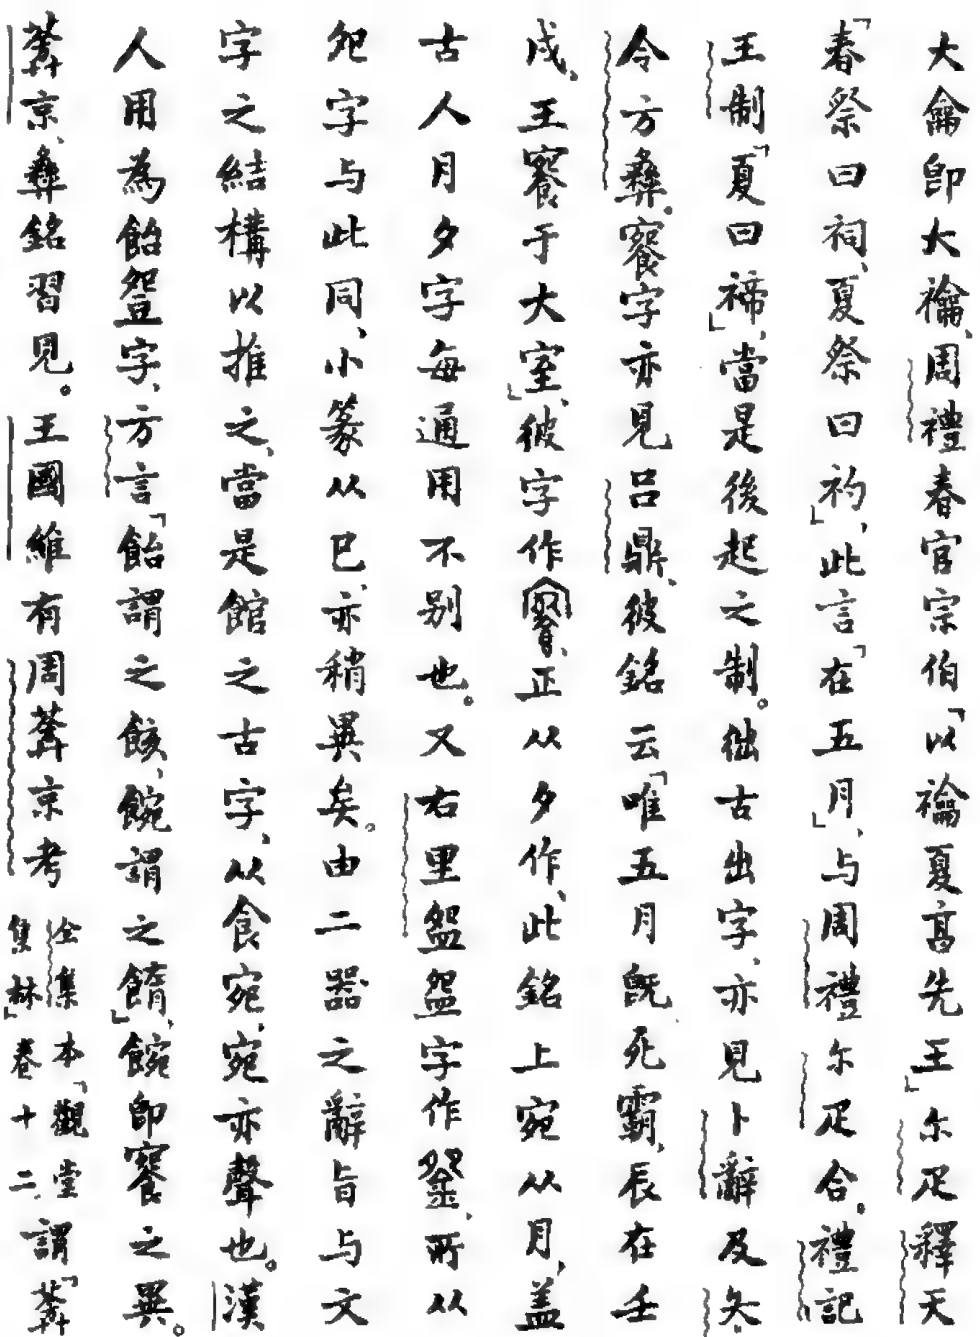 大龠卽大禴、周禮春官宗伯「以禴夏亯先王」尔疋釋天
「春祭曰祠、夏祭曰礿」、此言「在五月」、与周禮尔疋合。禮記
王制「夏曰禘」、當是後起之制。𥙊古出字、亦見卜辭及矢
令方彝。䬵字亦見吕鼎、彼銘云「唯五月旣死霸、辰在壬
戌、王䬵于大室」、彼字作、正从夕作、此銘上宛从月、盖
古人月夕字每通用不别也。又右里盌盌字作、所从
夗字与此同、小篆从㔾、亦稍異矣。由二器之辭旨与文
字之結構以推之、當是館之古字、从食宛、宛亦聲也。漢
人用為飴䇺字、方言「飴謂之䬵、䬼謂之䭉」、䬼卽䬵之異。
京、彝銘習見。王國維有周京考全集本「觀堂集林」卷十二、謂「